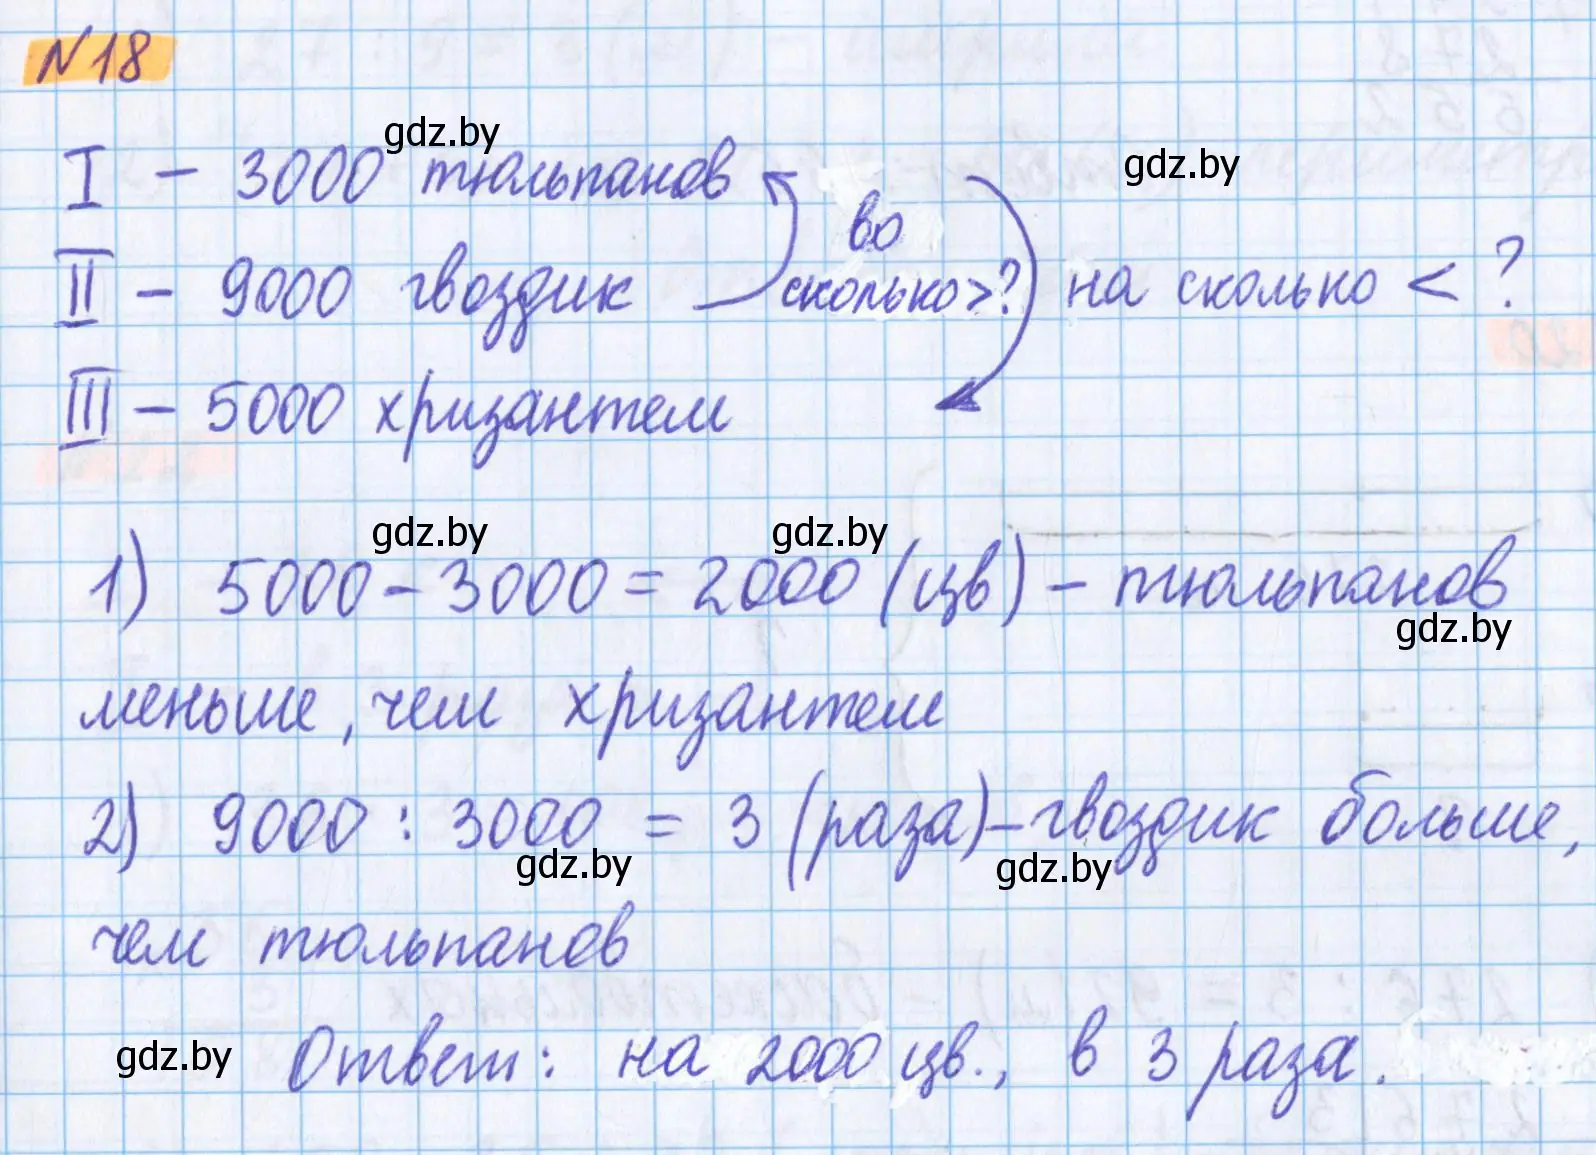 N 18
gdz.by
gdz.by
I – 3000 тюльпанов
во
II – 9000 гвоздик сколько >? на сколько < ?
III – 5000 хризантем
gdz.by gdz.by
1) 5000 – 3000 = 2000 (цв) – тюльпанов
gdz.by
меньше, чем хризантем
2) 9000 : 3000 = 3 (раза) – гвоздик больше,
gdz.by gdz.by
чем тюльпанов
gdz.by Ответ: на 2000 цв., в 3 раза.